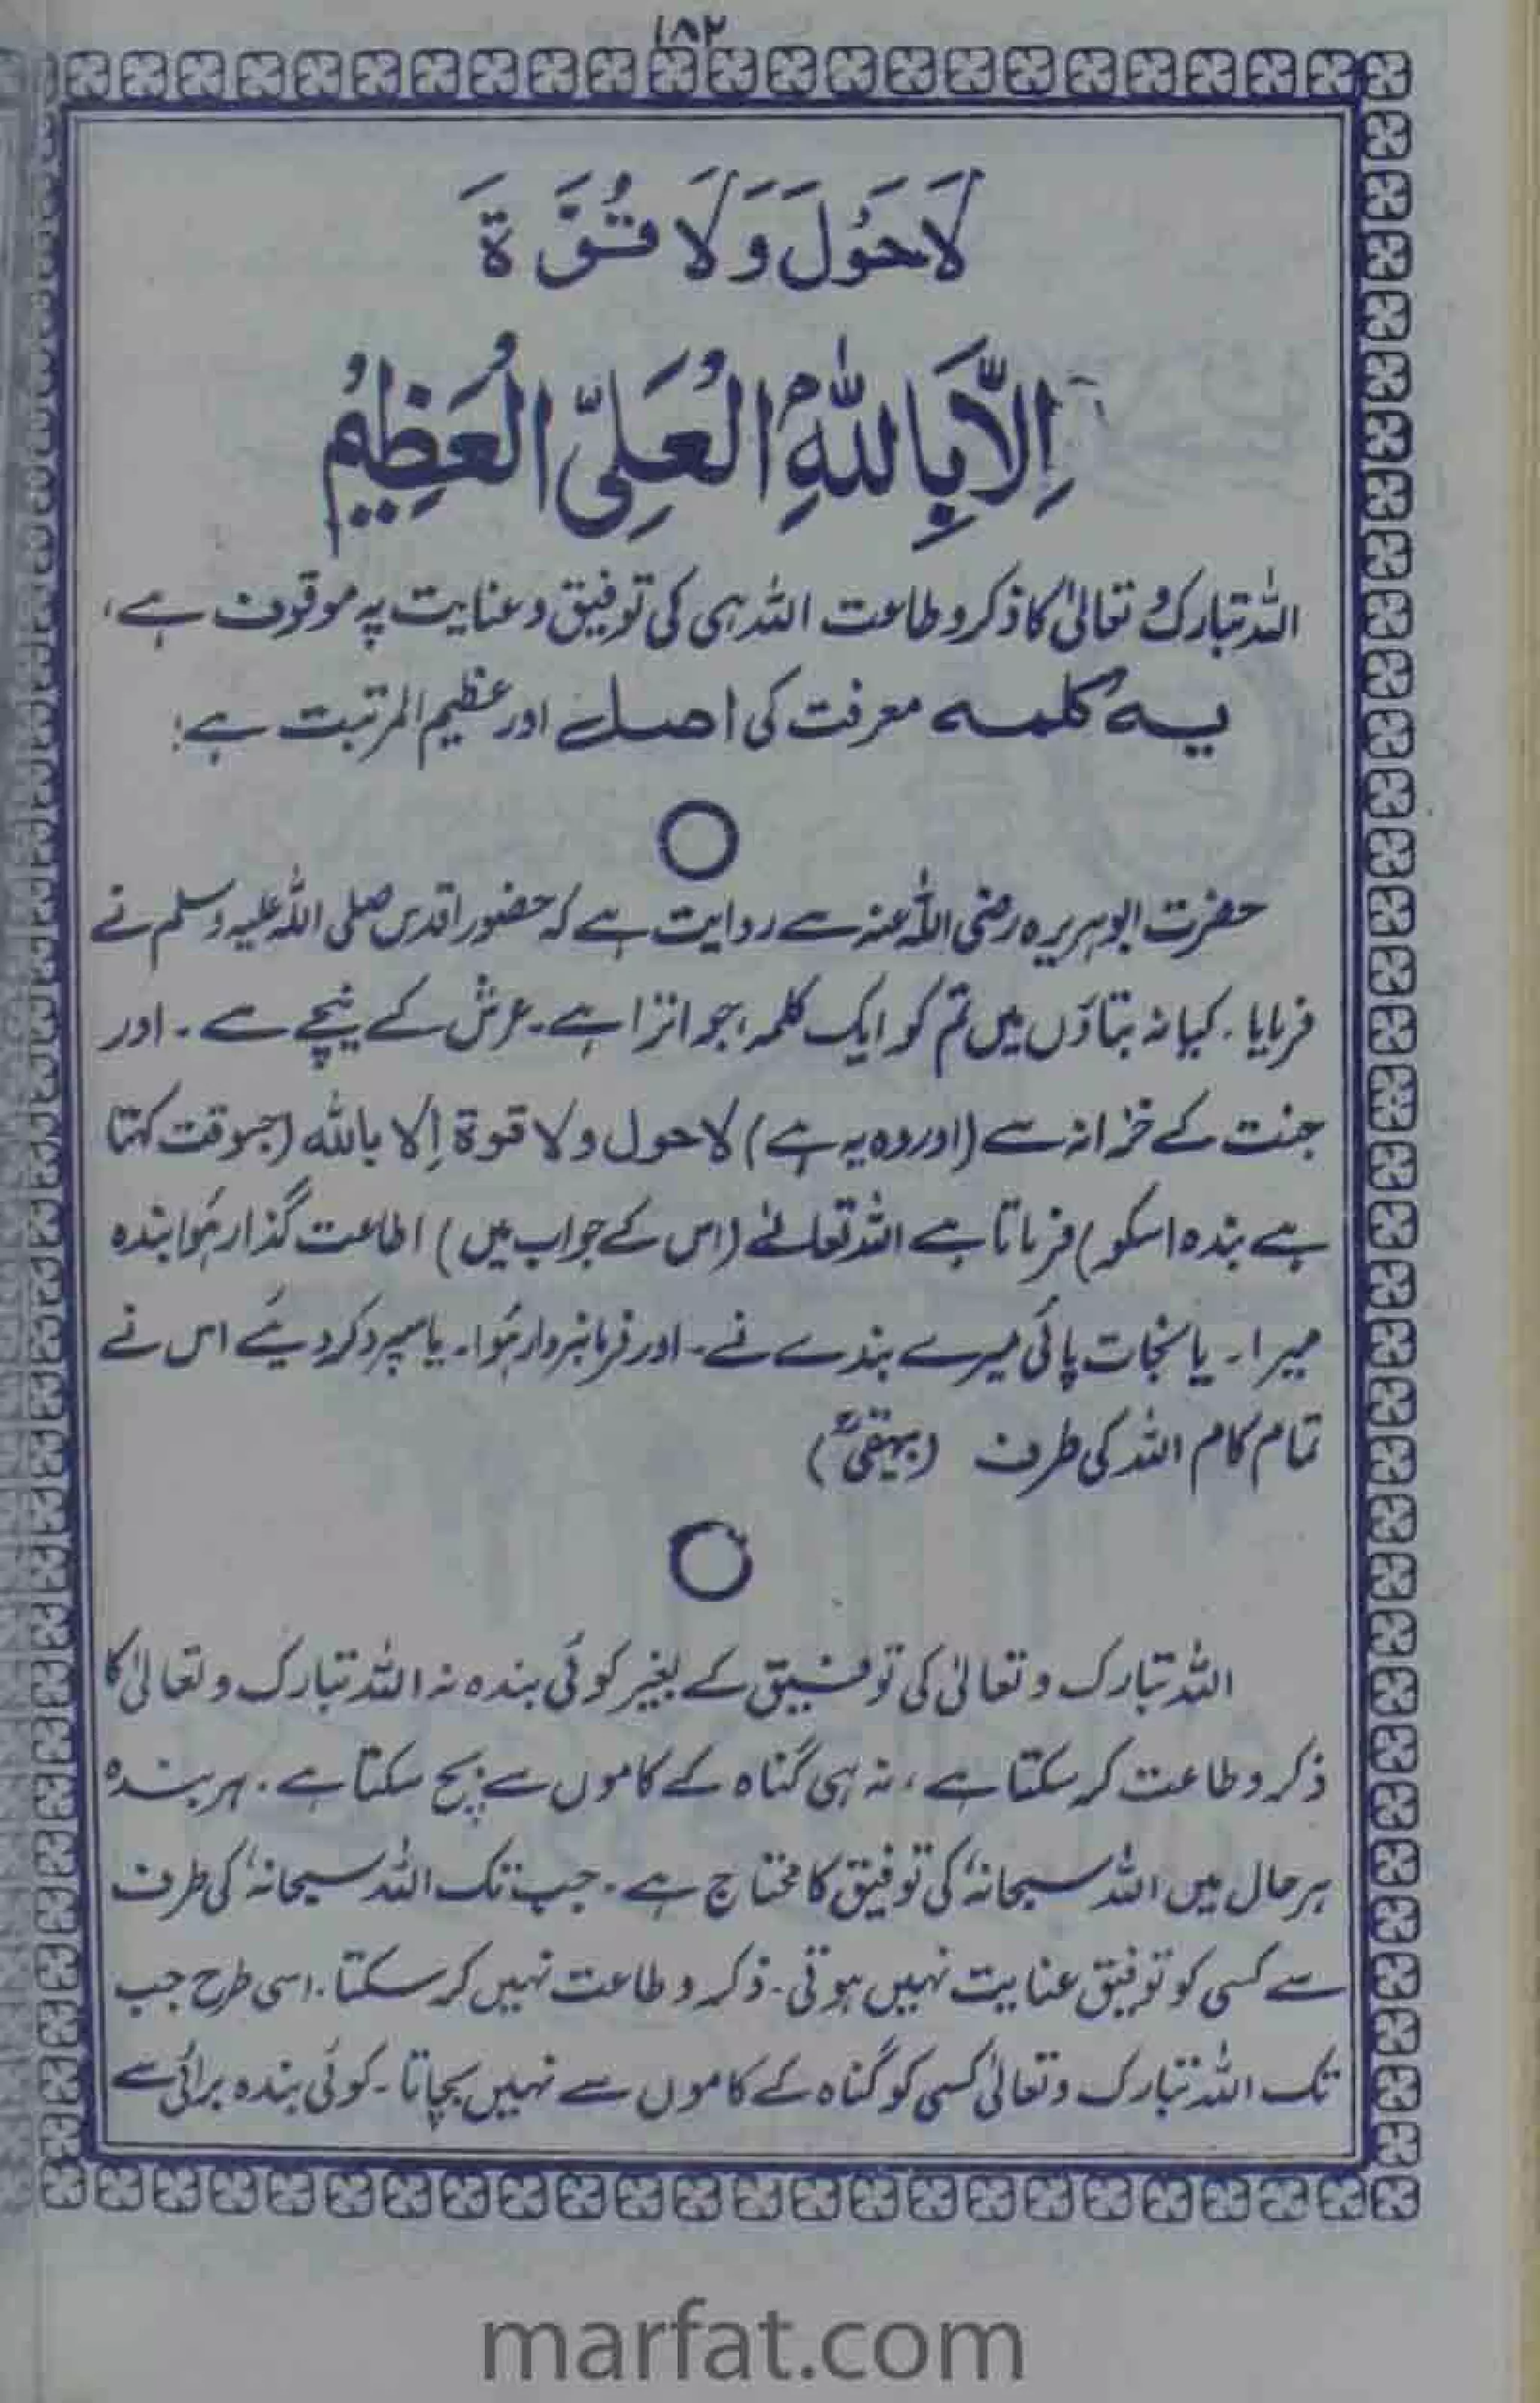 ۱۸۲
لَا حَوْلَ وَلَا قُوَّةَ
اِلَّا بِاللّٰهِ الْعَلِیِّ الْعَظِیْمُ
اللہ تبارک و تعالیٰ کا ذکر و طاعت اللہ ہی کی توفیق و عنایت پہ موقوف ہے،
یہ کلمہ معرفت کی اصل اور عظیم المرتبت ہے:
حضرت ابوہریرہ رضی اللہ عنہ سے روایت ہے کہ حضور اقدس صلی اللہ علیہ وسلم نے
فرمایا۔ کیا نہ بتاؤں میں تم کو ایک کلمہ، جو اترا ہے۔ عرش کے نیچے سے۔ اور
جنت کے خزانہ سے (اور وہ یہ ہے) لا حول ولا قوۃ اِلا باللہ (جسوقت کہتا
ہے بندہ اسکو) فرماتا ہے اللہ تعالےٰ (اس کے جواب میں) اطاعت گذار ہُوا بندہ
میرا۔ یا نجات پائی میرے بندے نے۔ اور فرمانبردار ہُوا۔ یا سپرد کر دیئے اس نے
تمام کام اللہ کی طرف (بیہقیؒ)
اللہ تبارک و تعالیٰ کی توفیق کے بغیر کوئی بندہ نہ اللہ تبارک و تعالیٰ کا
ذکر و طاعت کر سکتا ہے، نہ ہی گناہ کے کاموں سے بچ سکتا ہے۔ ہر بندہ
ہر حال میں اللہ سبحانہٗ کی توفیق کا محتاج ہے۔ جب تک اللہ سبحانہٗ کی طرف
سے کسی کو توفیق عنایت نہیں ہوتی۔ ذکر و طاعت نہیں کر سکتا۔ اسی طرح جب
تک اللہ تبارک و تعالیٰ کسی کو گناہ کے کاموں سے نہیں بچاتا۔ کوئی بندہ برائی سے
marfat.com